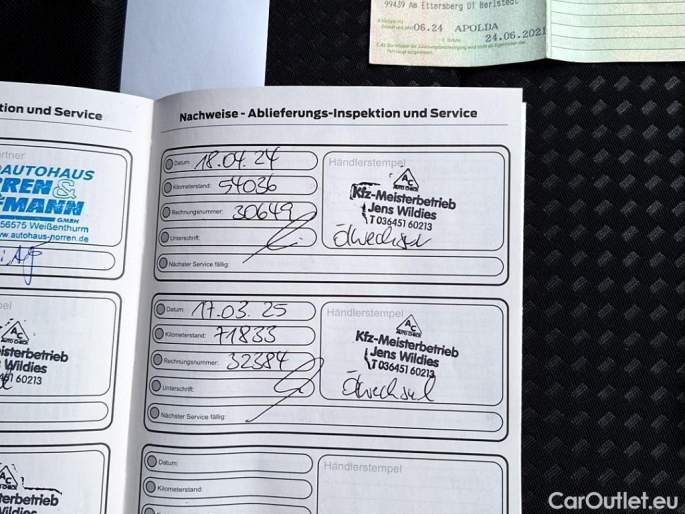 99439 Am Ettersberg OT Berlstedt
06.24 APOLDA
24.06.2021
tion und Service
Nachweise - Ablieferungs-Inspektion und Service
AUTOHAUS
RREN &
FMANN
GMBH
56575 Weißenthurm
www.autohaus-norren.de
Datum: 18.04.24
Kilometerstand: 54036
Rechnungsnummer: 30649
Unterschrift:
Nächster Service fällig:
Händlerstempel
AC
AUTO CHECK
Kfz-Meisterbetrieb
Jens Wildies
T 036451 60213
Ölwechsel
Datum: 17.03.25
Kilometerstand: 71833
Rechnungsnummer: 32384
Unterschrift:
Nächster Service fällig:
Händlerstempel
AC
AUTO CHECK
Kfz-Meisterbetrieb
Jens Wildies
T 036451 60213
Ölwechsel
AC
AUTO CHECK
eisterbetrieb
Wildies
451 60213
Datum:
Kilometerstand:
Händlerstempel
AC
sterbetrieb
Wildies
CarOutlet.eu